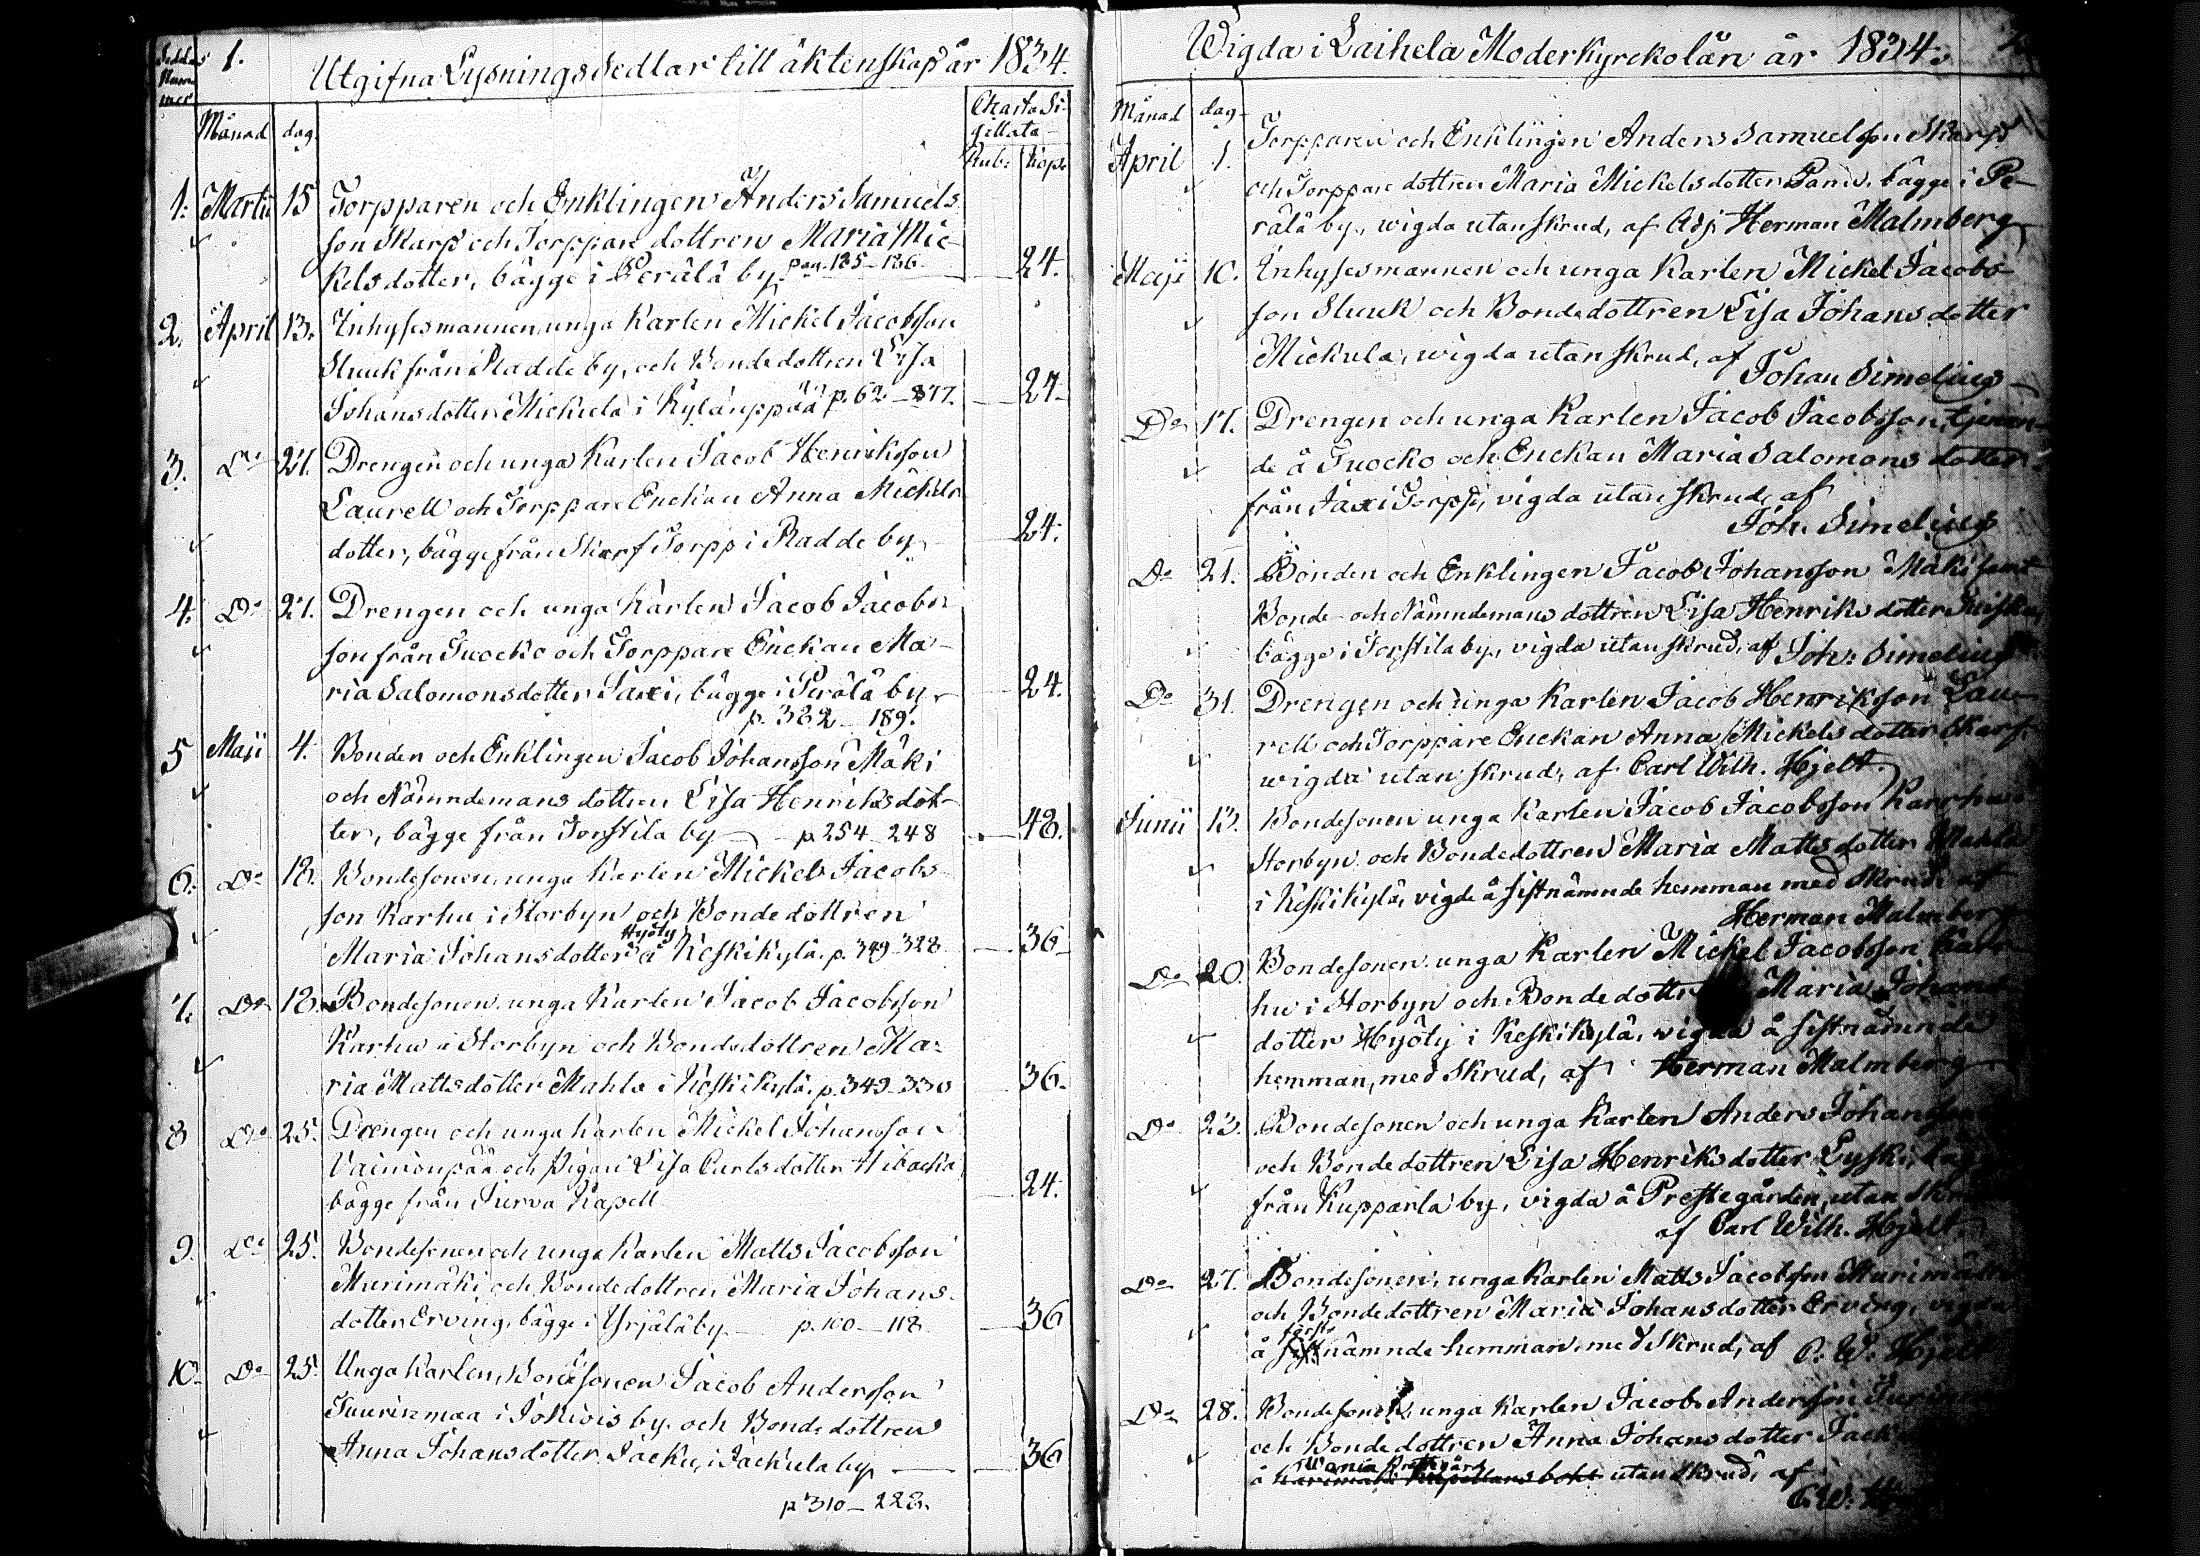 Sedlar
Num
mer
1.
Utgifna Lysnings Sedlar till äktenskap år 1834.
Månad dag.
Charta Si-
gillata
Rub: Kop:
1. Martii 15 Torpparen och Enklingen Anders Samuels
son Skarp och Torppare dottren Maria Mic-
kelsdotter, bägge i Perälä by. pag. 185-186. 24.
2. April 13. Inhysesmannen unga Karlen Mickel Jacobsson
Sluuk från Raddeby, och Bondedottren Lisa
Johansdotter Mickula i Kylänppää p. 62 24
3. Do 27. Drengen och unga Karlen Jacob Henriksson
Laurell och Torppare Enckan Anna Mickels
dotter, bägge från Skarf Torpp i Radde by 24.
4. Do 27. Drengen och unga Karlen Jacob Jacobs
son från Tuocko och Torppare Enckan Ma-
ria Salomonsdotter Jaxi, bägge i Perälä by 24.
p. 382 - 189.
5 Maji 4. Bonden och Enklingen Jacob Johansson Mäki
och Nämndemans dottren Lisa Henriksdot-
ter, bägge från Torstila by p 254 - 248 48.
6. Do 18. Bondesonen, unga Karlen Mickel Jacobs
son Karhu i Storbyn och Bonde dottren
Hyöty
Maria Johansdotter å Keskikylä. p. 349-328 36
7. Do 18. Bondesonen unga Karlen Jacob Jacobsson
Karhu i Storbyn och Bondedottren Ma=
ria Mattsdotter Mahla i Keskikylä. p. 349-330 36.
8 Do 25. Drengen och unga Karlen Mickel Johansson
Vainionpää och Pigan Lisa Carlsdotter
bägge från Jurva Kapell 24.
9. Do 25. Bondesonen och unga Karlen Matts Jacobsson
Murimäki, och Bondedottren Maria Johans-
dotter Erving, bägge i Yrjälä by p. 100 - 118 36
10. Do 25. Unga Karlen, Bondesonen Jacob Andersson
Tuurinmaa i Jokivis by och Bondedottren
Anna Johansdotter Jäcku, i Jackula by 36
p 310 - 223.
Wigda i Laihela Moderkyrkolän år 1834.
Månad dag
April 1. Torpparen och Enklingen Anders Samuelsson Skarp
och Torppare dottren Maria Mickelsdotter bägge i Pe-
rälä by, wigda utan skrud, af Adj: Herman Malmberg
Maji 10. Inhysesmannen och unga Karlen Mickel Jacobs-
son Sluuk och Bondedottren Lisa Johansdotter
Mickula, wigda utan skrud, af
Johan Simelius
Do 17. Drengen och unga Karlen Jacob Jacobsson, tjenan-
de å Tuocko och Enckan Maria Salomons dotter
från Jaxi Torpp, vigda utan skrud, af
Joh. Simelius
Do 21. Bonden och Enklingen Jacob Johansson Mäki samt
Bonde- och Nämndemans dottren Lisa Henriks dotter
bägge i Torstila by, vigda utan skrud, af Joh: Simelius
Do 31. Drengen och unga Karlen Jacob Henriksson Lau-
rell och Torppare Enckan Anna Mickelsdotter Skarf.
wigda utan skrud, af Carl Wilh. Hjelt
Junii 13. Bondesonen unga Karlen Jacob Jacobsson Karhu i
Storbyn och Bondedottren Maria Matts dotter Mahla
i Keskikylä, vigde å sistnämnde hemman med skrud af
Herman Malmberg
Do 20. Bondesonen unga Karlen Mickel Jacobsson Kar-
hu i Storbyn och Bonde dottren Maria Johans
dotter Hyöty i Keskikylä, wigda å sistnämnde
hemman, med skrud, af Herman Malmberg
Do 23. Bondesonen och unga Karlen Anders Johansson
och Bonde dottren Lisa Henriksdotter Lyski,
från Kupparla by, vigda å Prestegården, utan skrud
af Carl Wilh. Hjelt
Do 27. Bondesonen, unga Karlen Matts Jacobsson Murimäki
och Bondedottren Maria Johansdotter Erving, vigda
först
å sistnämnde hemman, med skrud, af C. W. Hjelt
Do 28. Bondesonen, unga Karlen Jacob Andersson
och Bonde dottren Anna Johans dotter Jäck
å utan skrud, af
C. W. H